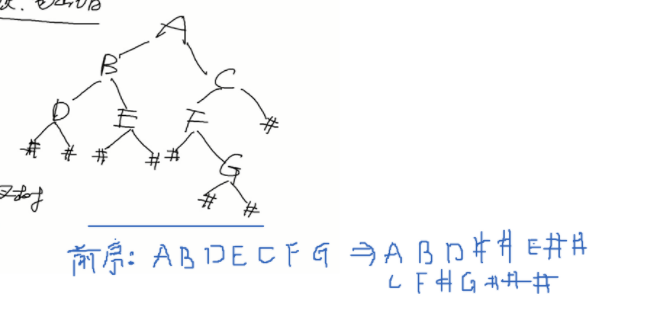 A
B C
D E F #
# # # # # G
# #
前序: A B D E C F G ⇒ A B D # # E # #
C F # G # # #